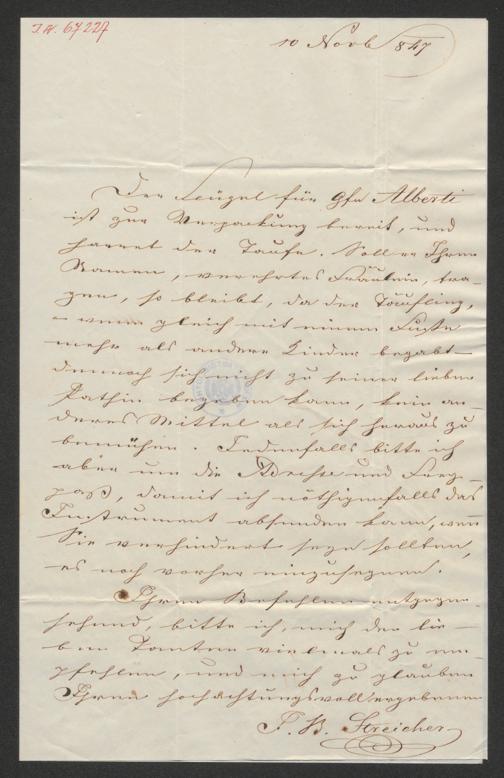 I.N. 67227
10 Novb 847
Der Flügel für Gfn Alberti
ist zur Verpackung bereit, und
harret der Taufe. Soll er Ihren
Namen, verehrtes Fräulein, tra-
gen, so bleibt, da der Täufling,
- wenn gleich mit einem Fuße
mehr als andere Kinder begabt -
dennoch sich nicht zu seiner lieben
Pathin begeben kann, kein an-
deres Mittel als sich heraus zu
bemühen. Jedenfalls bitte ich
aber um die Adresse und Frey-
paß, damit ich nöthigenfalls das
Instrument absenden kann, wen
Sie verhindert seyn sollten,
es noch vorher einzusegnen.
Ihren Befehlen entgegen
sehend, bitte ich, mich der lie-
ben Tanten vielmals zu em-
pfehlen, und mich zu glauben
Ihren hochachtungsvoll ergebenen
J. B. Streicher